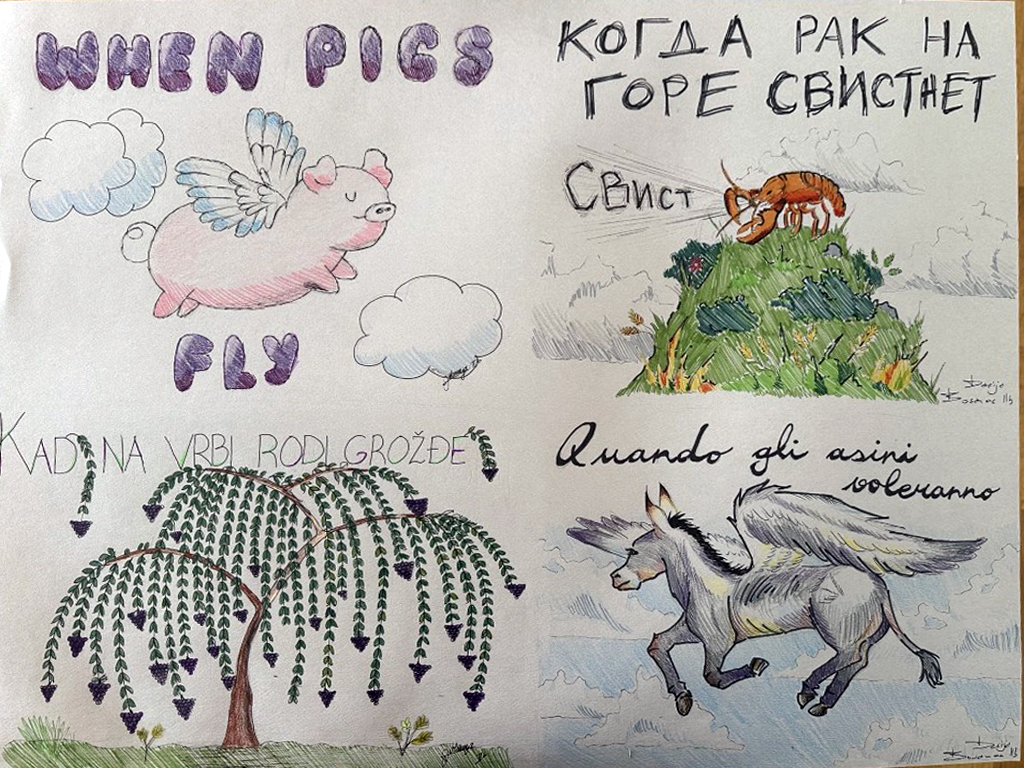 WHEN PIGS
FLY
КОГДА РАК НА
ГОРЕ СВИСТНЕТ
СВИСТ
Darijo
Bosanac IIb
KAD NA VRBI RODI GROŽĐE
Quando gli asini
voleranno